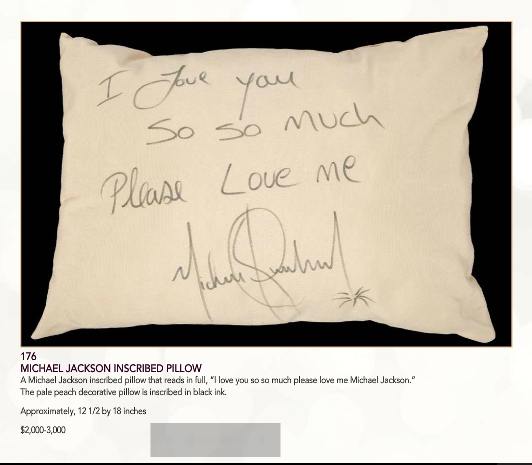 I Love you
So So Much
Please Love me
Michael Jackson
176
MICHAEL JACKSON INSCRIBED PILLOW
A Michael Jackson inscribed pillow that reads in full, "I love you so so much please love me Michael Jackson."
The pale peach decorative pillow is inscribed in black ink.
Approximately, 12 1/2 by 18 inches
$2,000-3,000